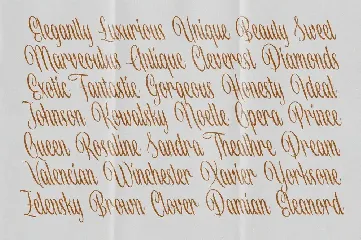 Elegantly Luxurious Unique Beauty Sweet
Marveoulus Antique Cleverest Diamonds
Exotic Fantastic Gorgeous Honesty Ideal
Johnson Kowalsky Noelle Opera Prince
Queen Rosaline Sandra Theatre Dream
Valencian Winchester Xavier Yorksone
Zelensky Brown Clover Danian Eleanord